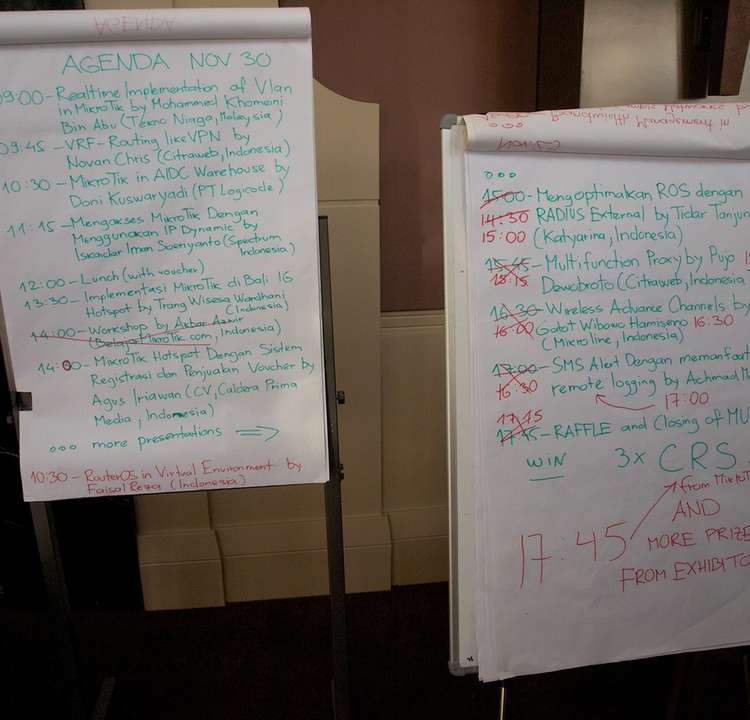 AGENDA
AGENDA NOV 30
09:00-Realtime Implementation of Vlan
in MikroTik by Mohammed Khomeini
Bin Abu (Tekno Niaga, Malaysia)
09:45 - VRF-Routing like VPN by
Novan Chris (Citraweb, Indonesia)
10:30 - MikroTik in AIDC Warehouse by
Doni Kuswaryadi (PT Logicode)
11:15 - Mengakses MikroTik Dengan
Menggunakan IP Dynamic by
Iskandar Iman Soeriyanto (Spectrum
Indonesia)
12:00 - Lunch (with voucher)
13:30 - Implementasi MikroTik di Bali 16
Hotspot by Trang Wisesa Wardhani
(Indonesia)
14:00 - Workshop by Akbar Azwir
(BelajarMikroTik.com, Indonesia)
14:00 - MikroTik Hotspot Dengan Sistem
Registrasi dan Penjualan Voucher by
Agus Iriawan (CV, Caldera Prima
Media, Indonesia)
ooo more presentations
10:30 - RouterOS in Virtual Environment by
Faisal Reza (Indonesia)
ooo
15:00 - Mengoptimalkan ROS dengan
14:30 RADIUS External by Tidar Tanjun
15:00 (Katyarina, Indonesia)
15:45 - Multifunction Proxy by Pujo
15:15 Dewobroto (Citraweb, Indonesia
16:30 - Wireless Advance Channels by
16:00 Gatot Wibowo Hamiseno 16:30
(Microline, Indonesia)
17:00 - SMS Alert Dengan memanfaat
16:30 remote logging by Achmad M
17:00
17:15
17:45 - RAFFLE and Closing of MU
WIN 3x CRS
from MikroT
AND
17:45 MORE PRIZE
FROM EXHIBITO